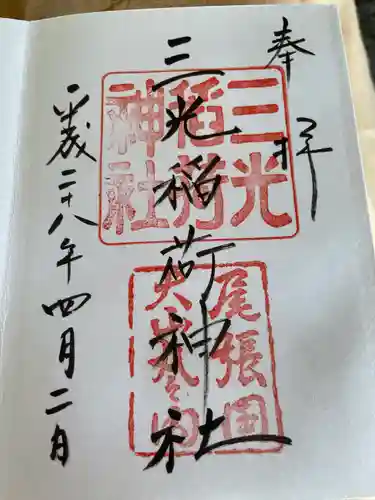 奉拝
三光稲荷神社
三光稲荷神社
尾張国犬山
平成二十八年四月二日